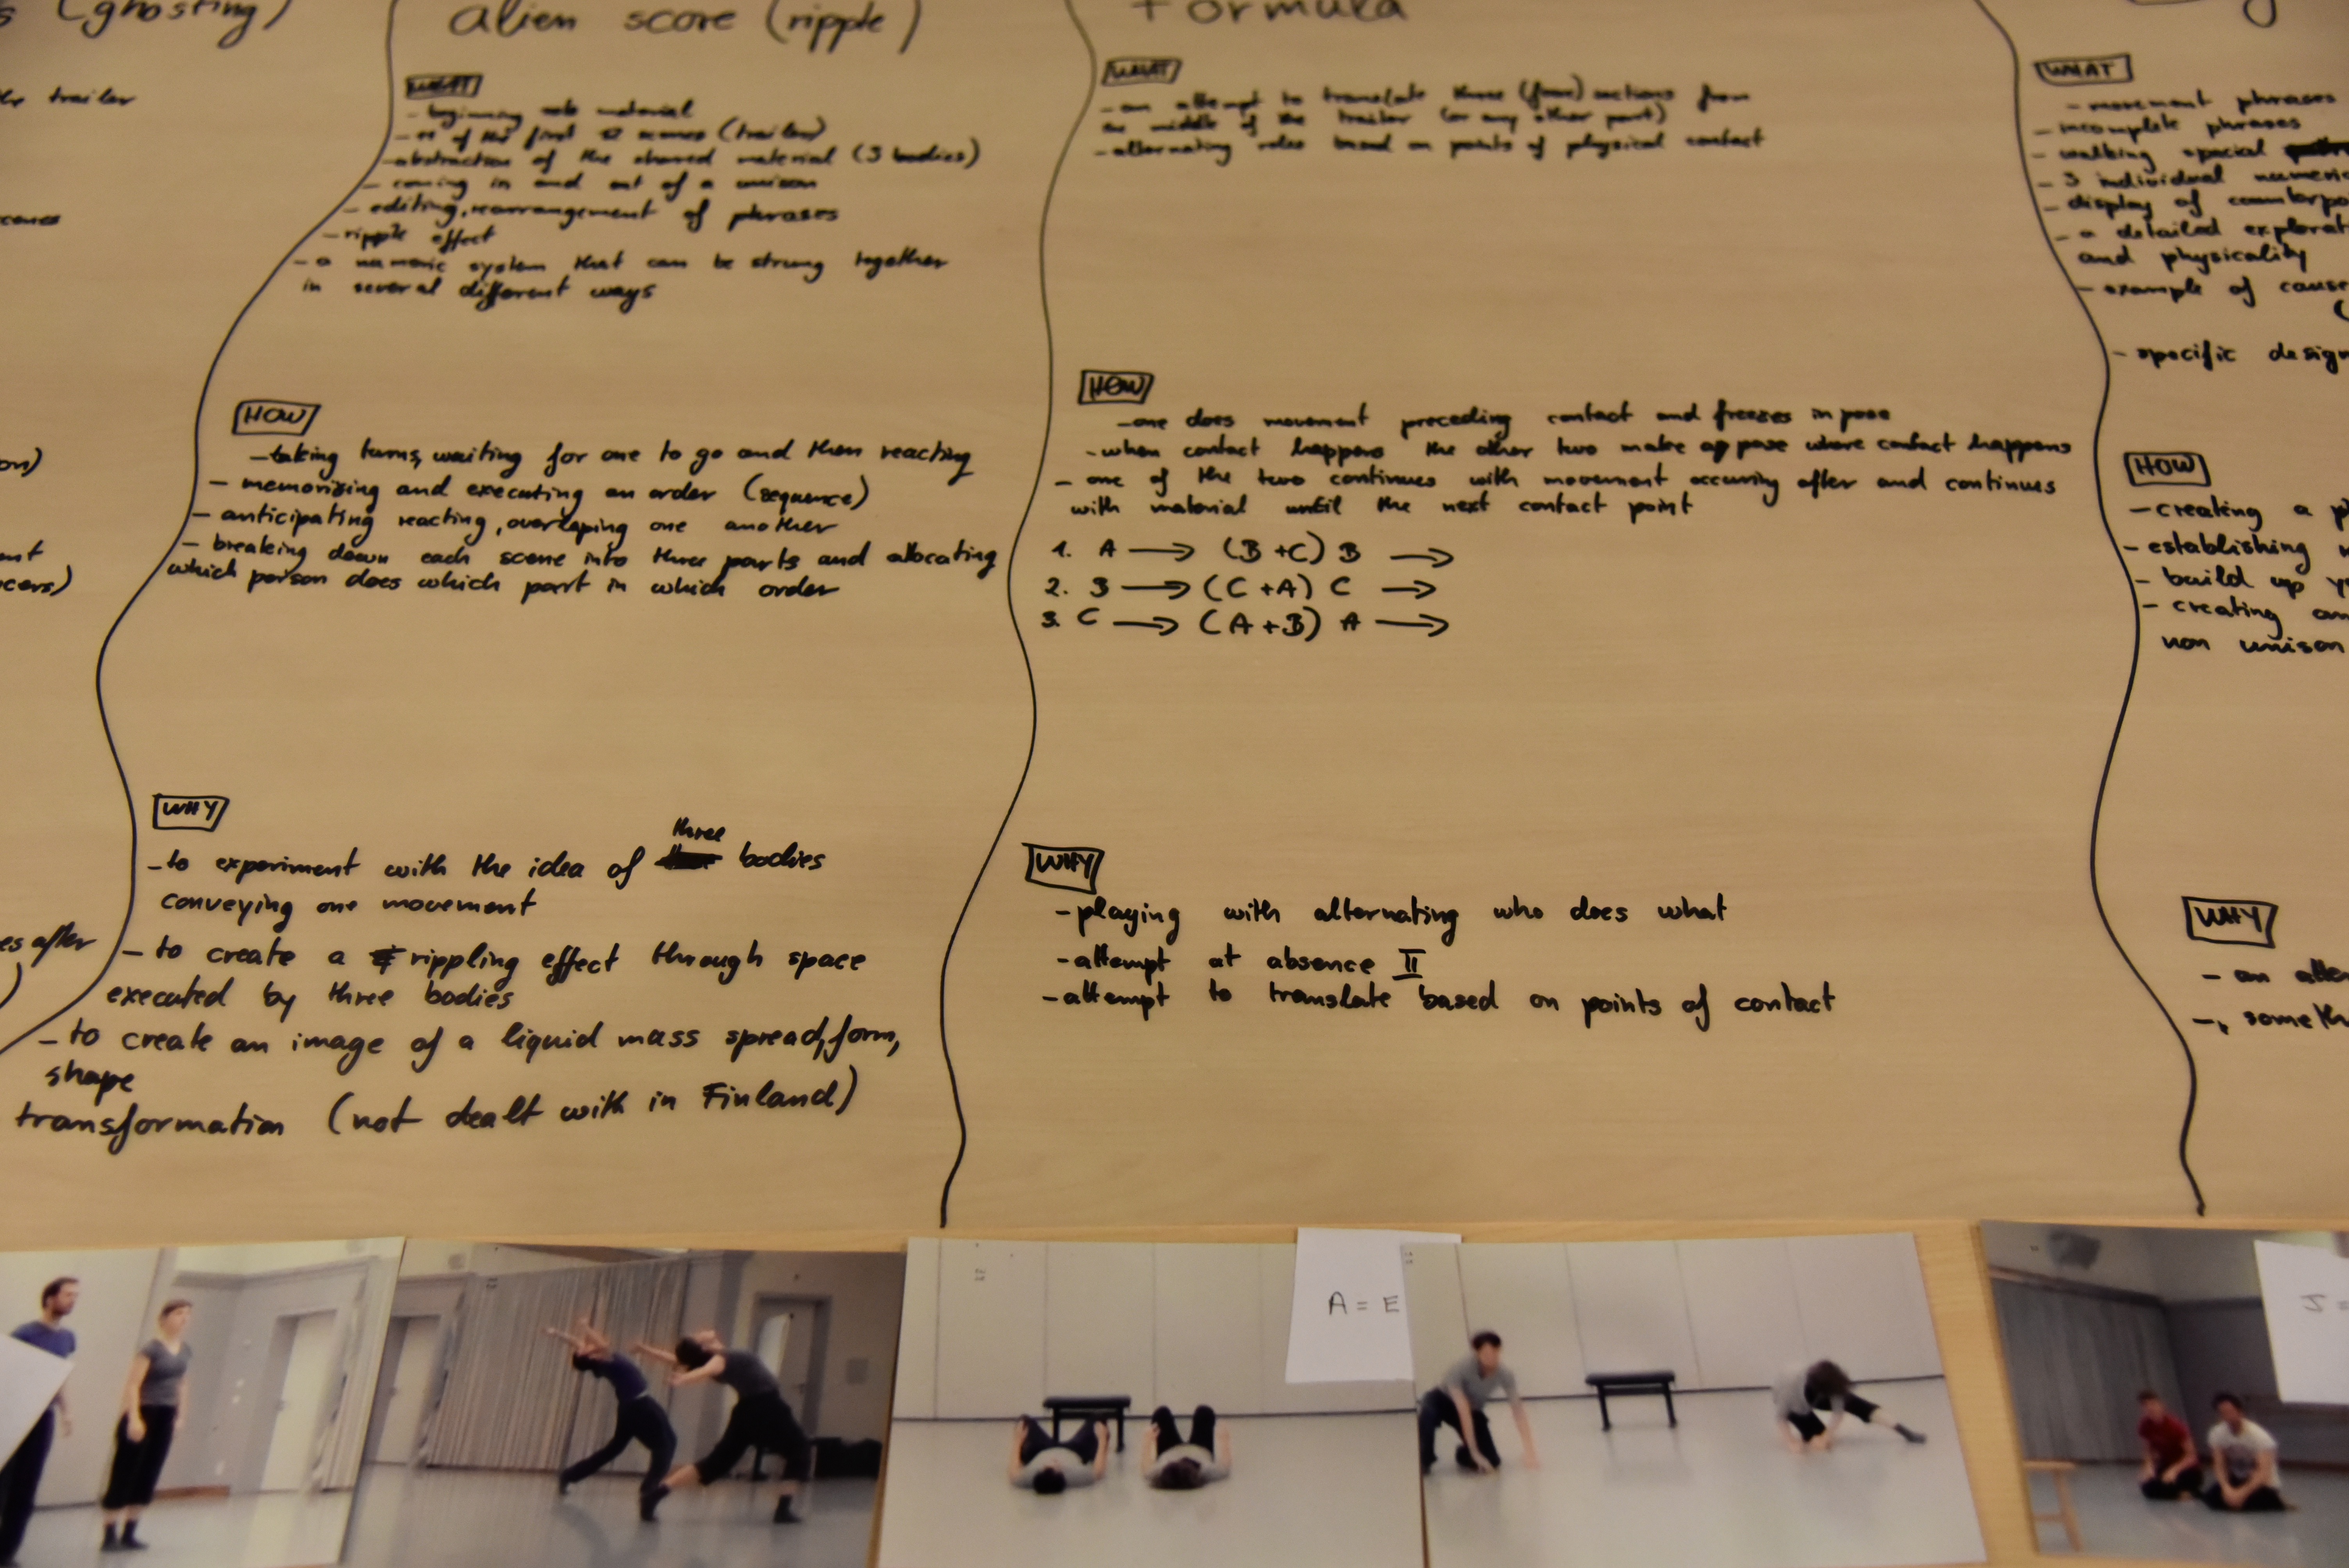 (ghosting)
the trailer
after
alien score (ripple)
WHAT
- beginning solo material
- of the first scenes (trailer)
- abstraction of the shared material (3 bodies)
- coming in and out of a unison
- editing, rearrangement of phrases
- ripple effect
- a numeric system that can be strung together
in several different ways
HOW
- taking turns, waiting for one to go and then reacting
- memorising and executing an order (sequence)
- anticipating reacting, overlaping one another
- breaking down each scene into three parts and allocating
which person does which part in which order
WHY
- to experiment with the idea of three bodies
conveying one movement
- to create a rippling effect through space
executed by three bodies
- to create an image of a liquid mass spread, form,
shape
transformation (not dealt with in Finland)
Formula
WHAT
- an attempt to translate three (four) sections from
the middle of the trailer (or any other part)
- alternating roles based on points of physical contact
HOW
- one does movement preceding contact and freezes in pose
- when contact happens the other two make a pose where contact happens
- one of the two continues with movement occuring after and continues
with material until the next contact point
1. A → (B + C) B →
2. B → (C + A) C →
3. C → (A + B) A →
WHY
- playing with alternating who does what
- attempt at absence II
- attempt to translate based on points of contact
WHAT
- movement phrases
- incomplete phrases
- walking spacial
- 3 individual numeric
- display of
- a detailed
and physicality
- example of cause
- specific
HOW
- creating a
- establishing
- build up
- creating
non unison
WHY
- an
-
A = E
J =